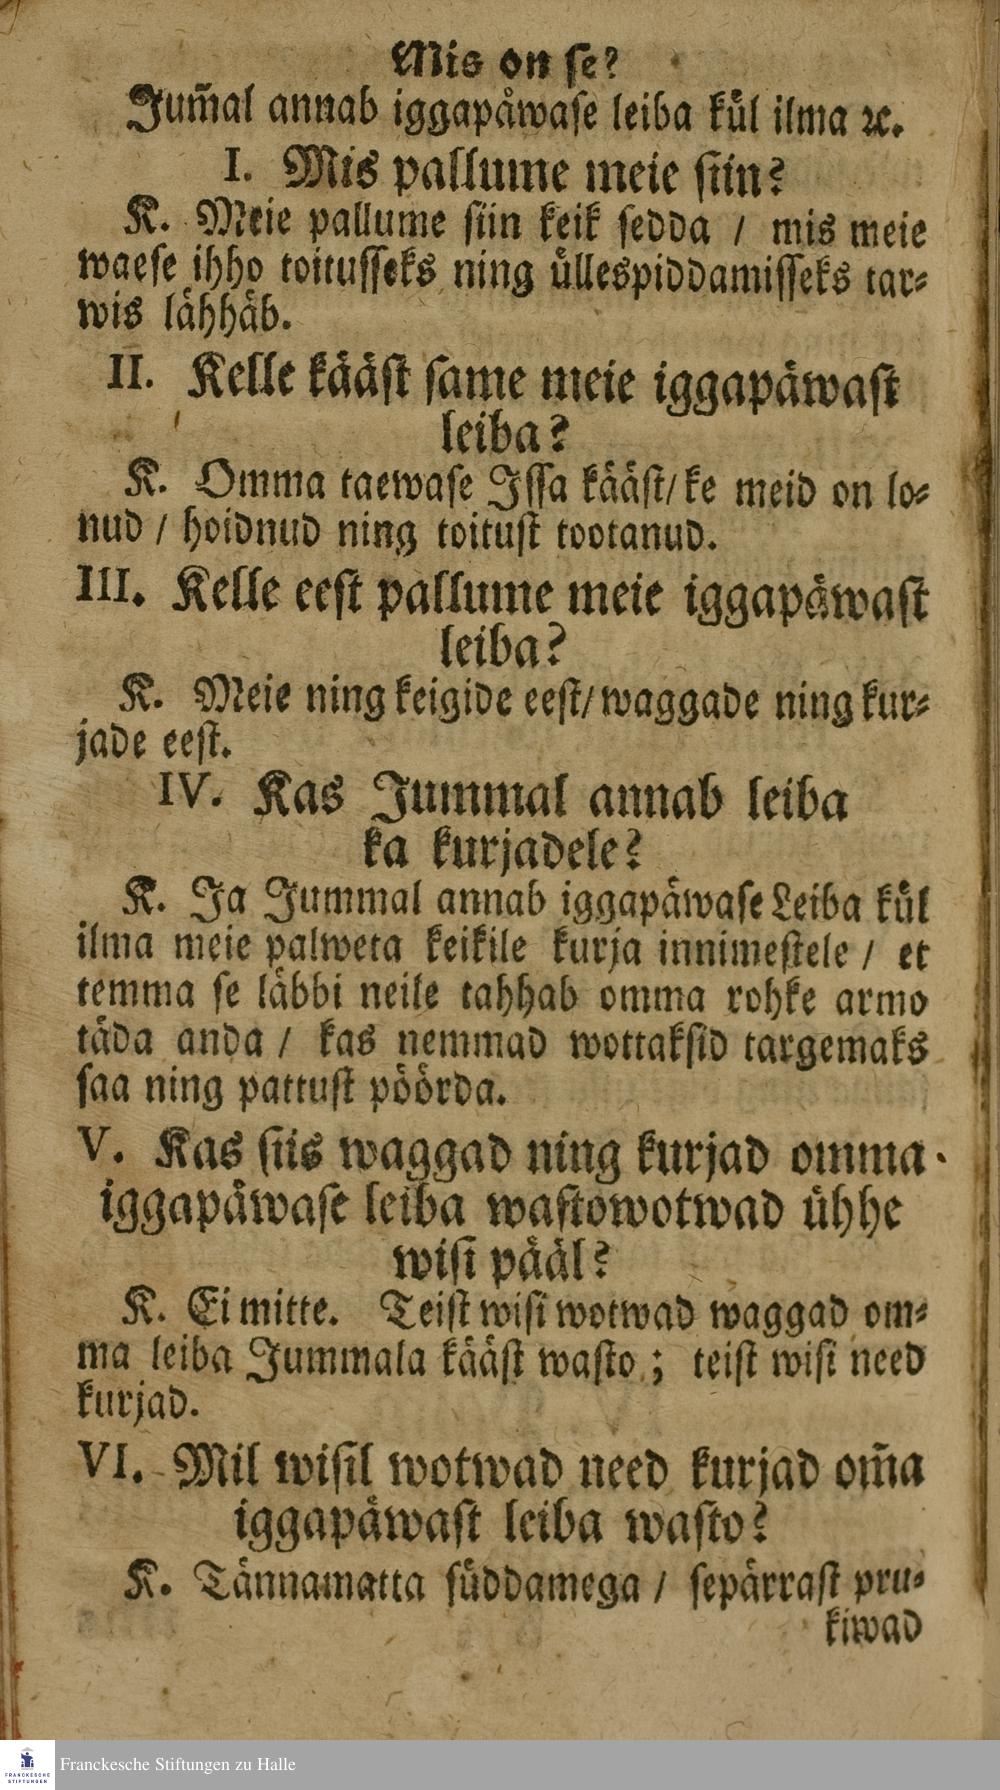 Mis on se?
Jum̃al annab iggapåwase leiba kül ilma ꝛc.
I. Mis pallume meie siin?
K. Meie pallume siin keik sedda / mis meie
waese ihho toitusseks ning üllespiddamisseks tar⸗
wis lähhäb.
II. Kelle kääst same meie iggapäwast
leiba?
K. Omma taewase Issa kääst/ ke meid on lo⸗
nud / hoidnud ning toitust tootanud.
III. Kelle eest pallume meie iggapäwast
leiba?
K. Meie ning keigide eest/ waggade ning kur⸗
jade eest.
IV. Kas Jummal annab leiba
ka kurjadele?
K. Ja Jummal annab iggapäwase Leiba kül
ilma meie palweta keikile kurja innimestele / et
temma se läbbi neile tahhab omma rohke armo
täda anda / kas nemmad wottaksid targemaks
saa ning pattust pöörda.
V. Kas siis waggad ning kurjad omma
iggapäwase leiba wastowotwad ühhe
wisi pääl?
K. Ei mitte. Teist wisi wotwad waggad om⸗
ma leiba Jummala kääst wasto ; teist wisi need
kurjad.
VI. Mil wisil wotwad need kurjad om̃a
iggapäwast leiba wasto?
K. Tännamatta süddamega / sepärrast pru⸗
kiwad
FRANCKESCHE
STIFTUNGEN
Franckesche Stiftungen zu Halle